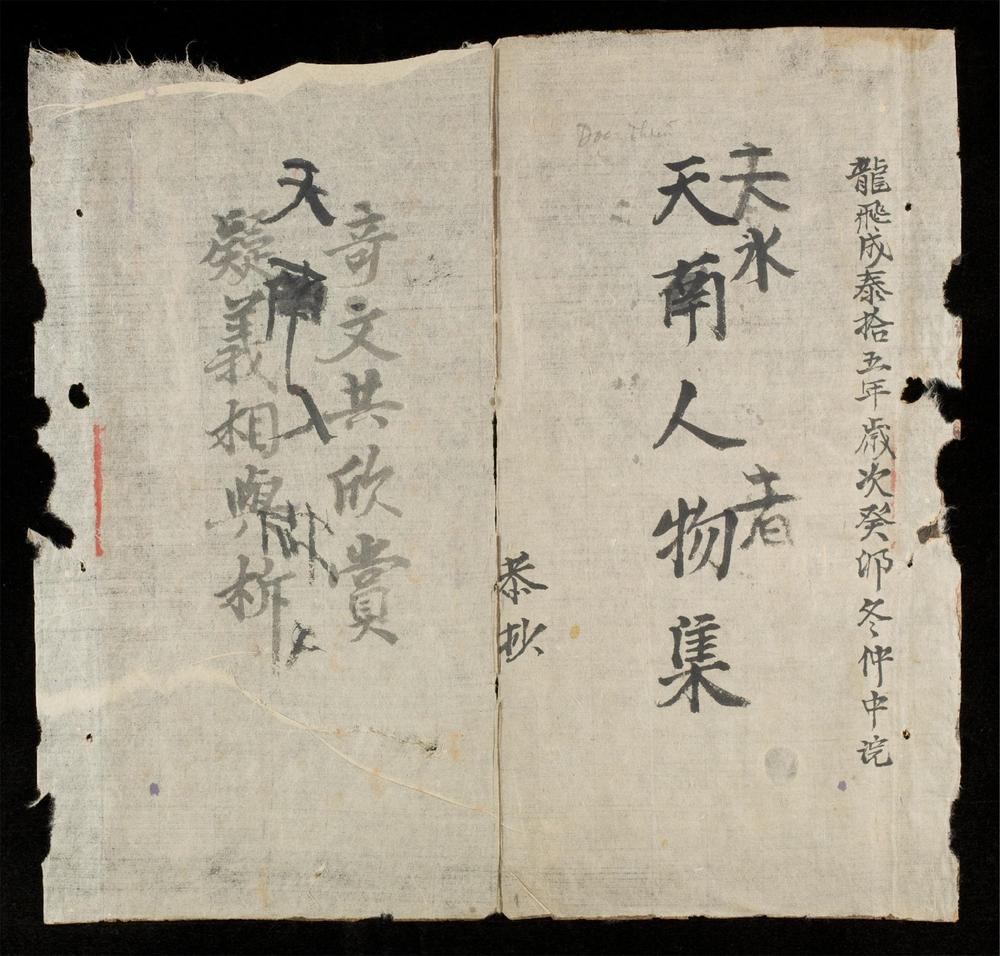 龍飛成泰拾五年歲次癸卯冬仲中浣
天南人物集
者
恭抄
奇文共欣賞
疑義相與析